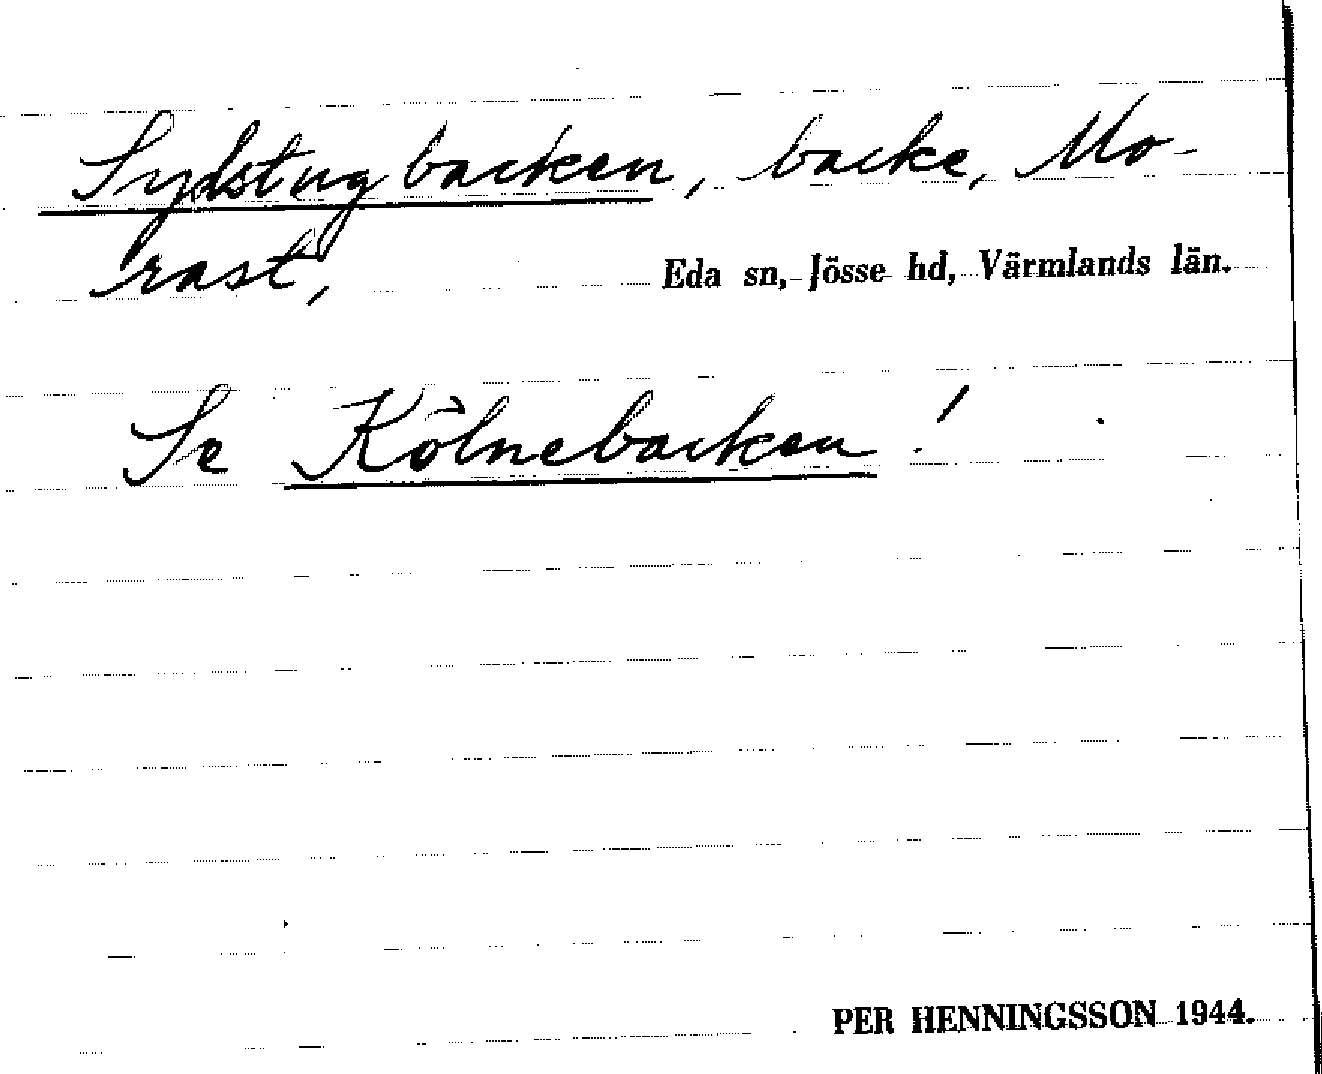 Sydstugbacken, backe, Mo-
rast, Eda sn, Jösse hd, Värmlands län.
Se Kölnebacken!
PER HENNINGSSON 1944.